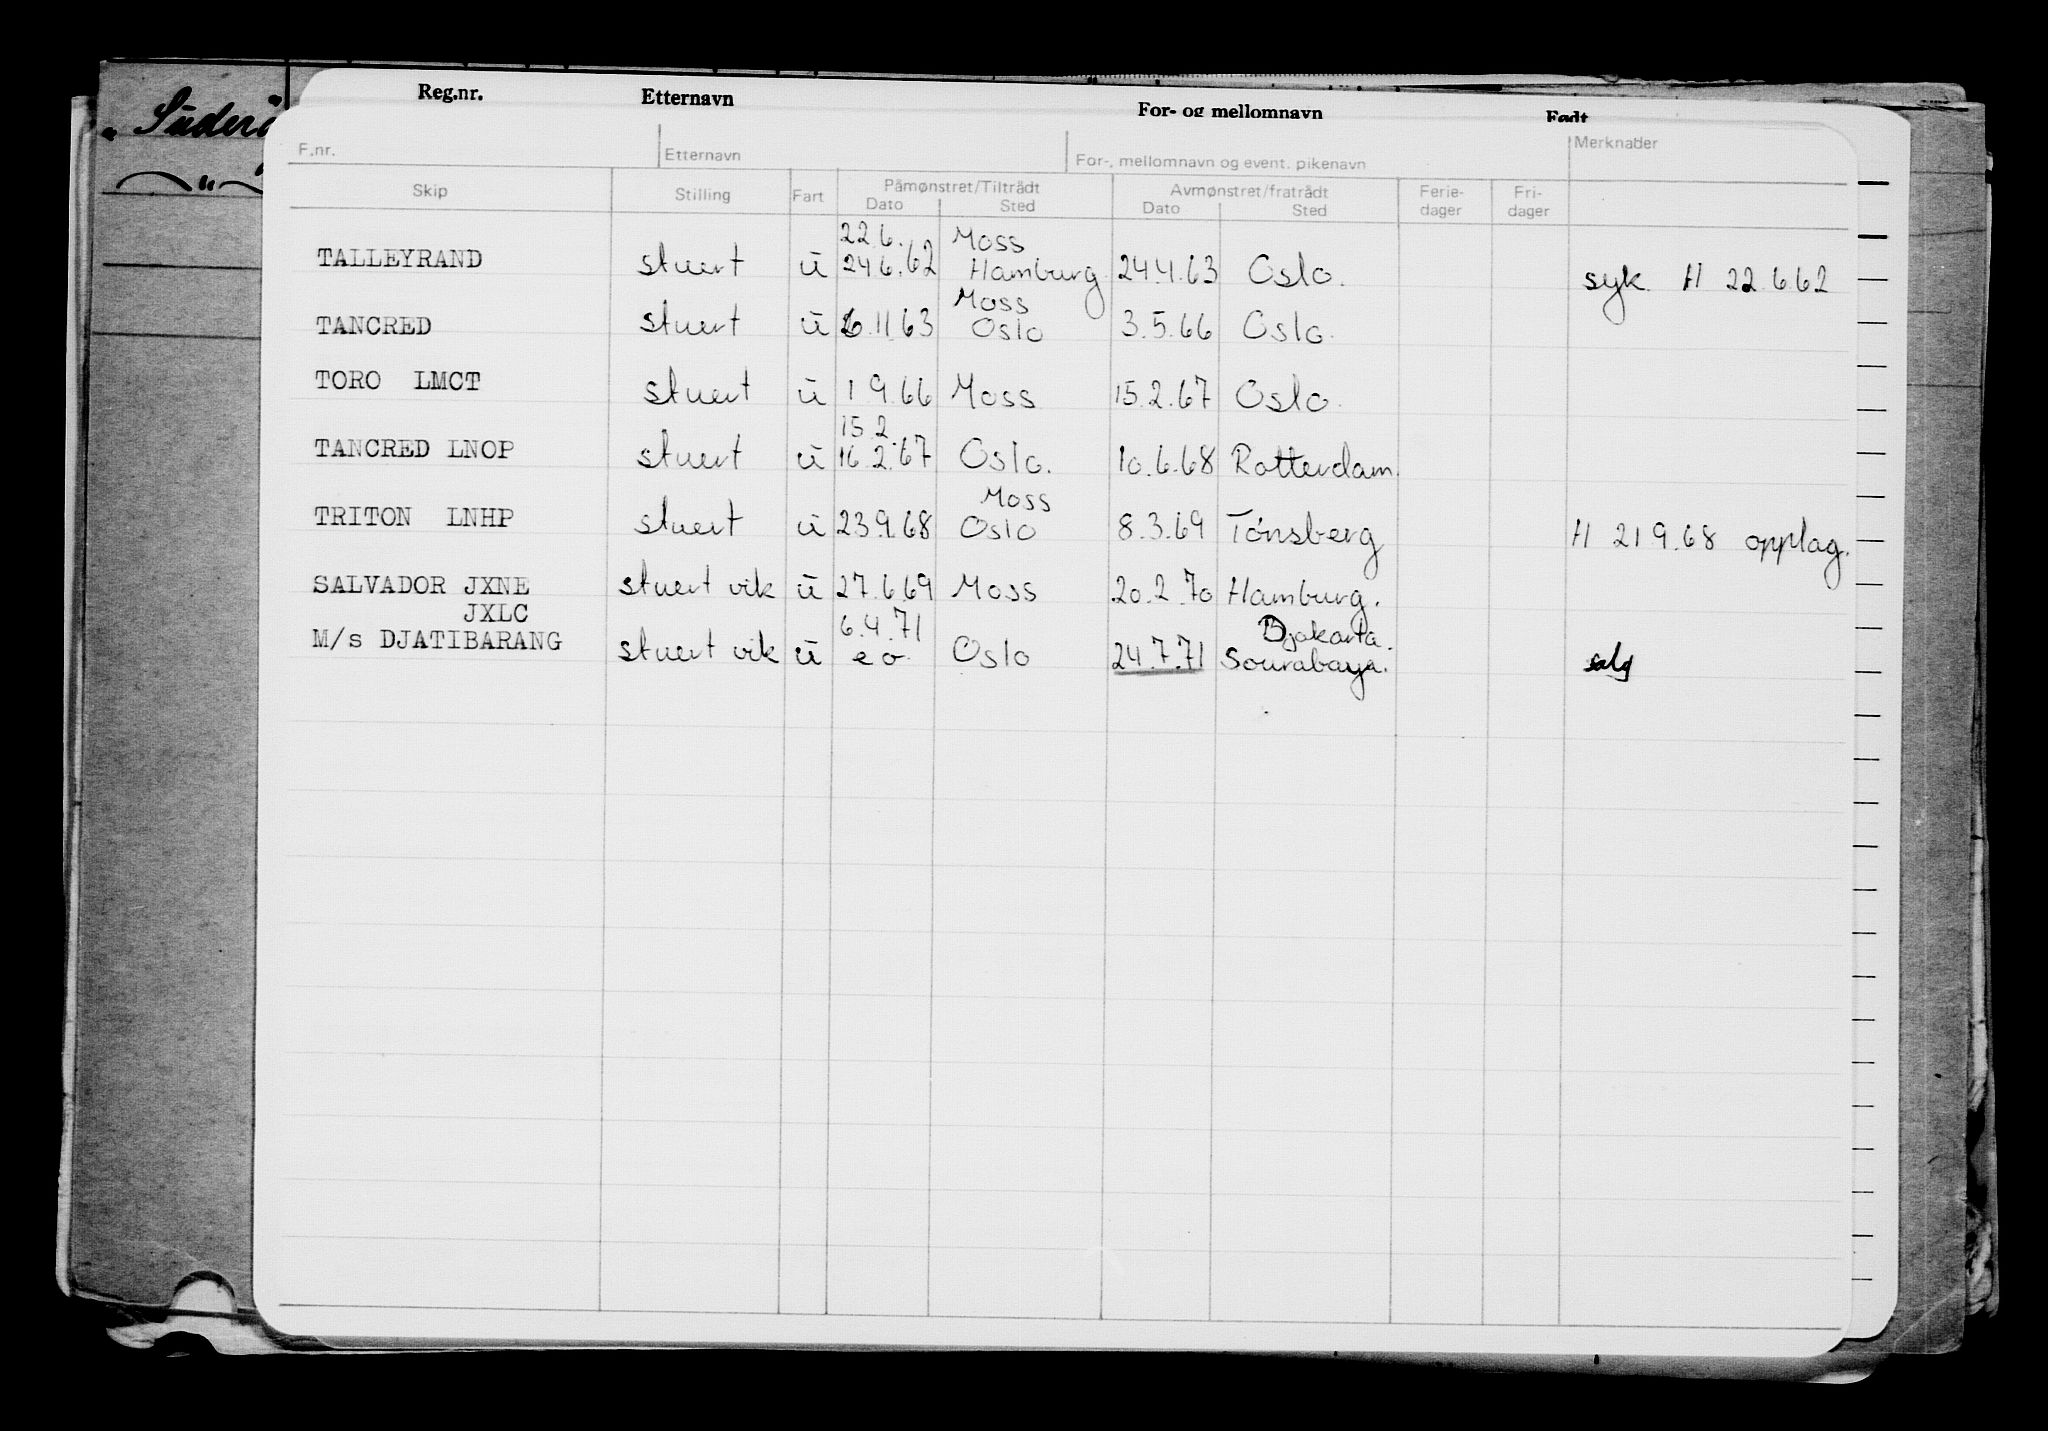 Reg.nr. Etternavn For- og mellomnavn Født
F.nr. Etternavn For-, mellomnavn og event. pikenavn Merknader
Skip Stilling Fart Påmønstret/Tiltrådt Avmønstret/fratrådt Ferie- Fri-
Dato Sted Dato Sted dager dager
22.6. Moss
TALLEYRAND stuert u 24.6.62 Hamburg 24.4.63 Oslo. syk H 22.6.62
Moss
TANCRED stuert u 6.11.63 Oslo 3.5.66 Oslo.
TORO LMCT stuert u 1.9.66 Moss 15.2.67 Oslo.
15.2.
TANCRED LNOP stuert u 16.2.67 Oslo. 10.6.68 Rotterdam.
Moss
TRITON LNHP stuert u 23.9.68 Oslo 8.3.69 Tønsberg H 21.9.68 opplag.
SALVADOR JXNE stuert vik u 27.6.69 Moss 20.2.70 Hamburg.
JXLC 6.4.71 Djakarta.
M/s DJATIBARANG stuert vik u e o Oslo 24.7.71 Sourabaya. salg